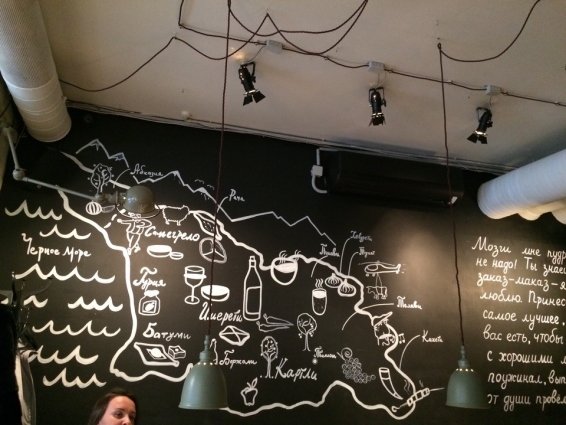 Абхазия
Рача
Самегрело
Черное Море
Гурия
Имерети
Батуми
Боржоми
Картли
Тбилиси
Телави
Кахети
Мозги мне пудр
не надо! Ты знае
заказ-маказ-я
люблю. Принес
самое лучшее,
вас есть, чтобы
с хорошими л
поужинал, вып
от души провел